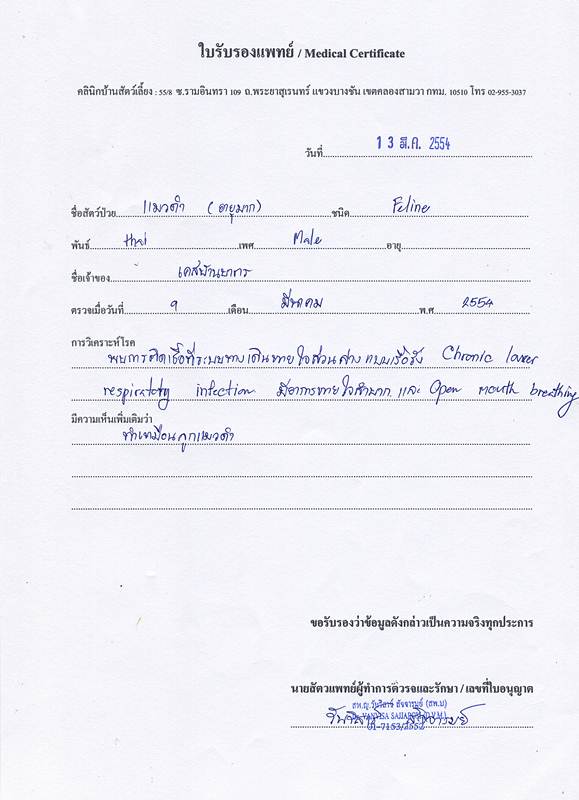 ใบรับรองแพทย์ / Medical Certificate
คลินิกบ้านสัตว์เลี้ยง : 55/8 ซ.รามอินทรา 109 ถ.พระยาสุเรนทร์ แขวงบางชัน เขตคลองสามวา กทม. 10510 โทร 02-955-3037
วันที่ 13 มี.ค. 2554
ชื่อสัตว์ป่วย แมวดำ (อายุมาก) ชนิด Feline
พันธ์ thai เพศ Male อายุ
ชื่อเจ้าของ
ตรวจเมื่อวันที่ 9 เดือน มีนาคม พ.ศ 2554
การวิเคราะห์โรค
พบการติดเชื้อที่ระบบทางเดินหายใจส่วนล่างแบบเรื้อรัง Chronic lower
respiratory infection มีอาการหายใจลำบาก และ Open mouth breathing
มีความเห็นเพิ่มเติมว่า
ทำเหมือนลูกแมวดำ
ขอรับรองว่าข้อมูลดังกล่าวเป็นความจริงทุกประการ
นายสัตวแพทย์ผู้ทำการตัวรจและรักษา / เลขที่ใบอนุญาต
01-7153/2552